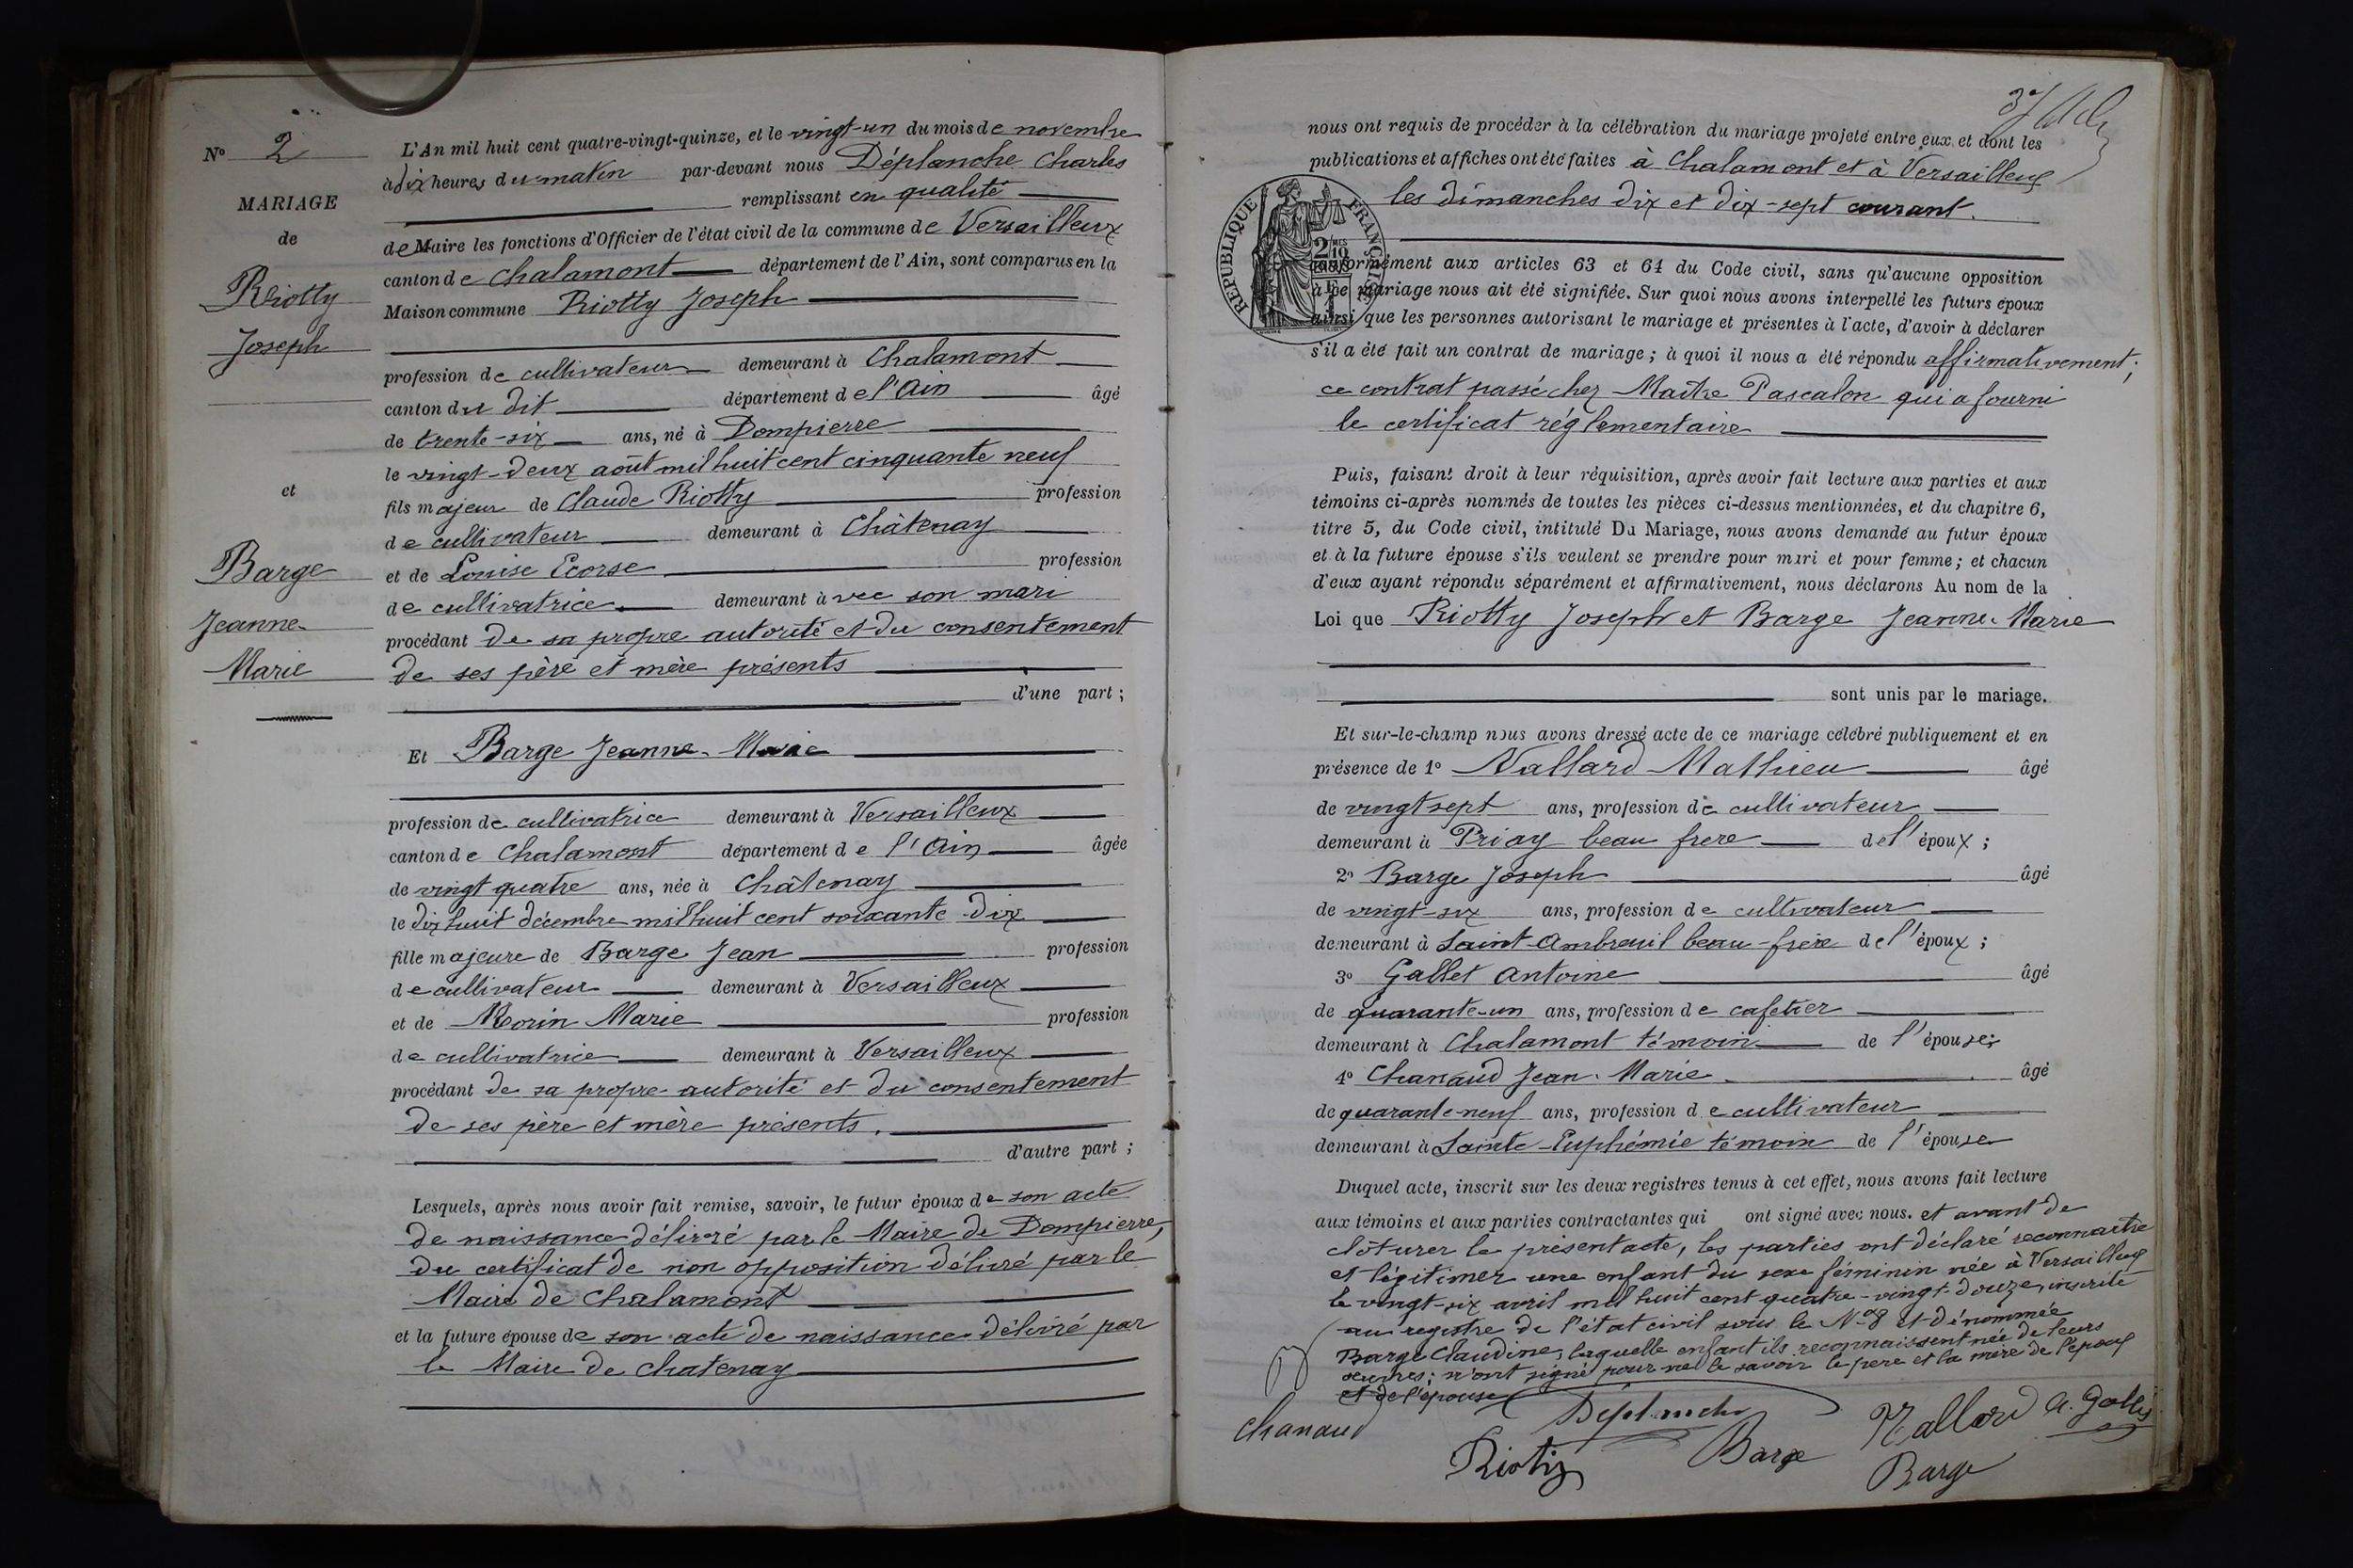 N° 2
MARIAGE
de
Riotty
Joseph
et
Barge
Jeanne-
Marie
L'An mil huit cent quatre-vingt-quinze, et le vingt-un du mois de novembre
à dix heures du matin par-devant nous Déplanche Charles
remplissant en qualité
de Maire les fonctions d'Officier de l'état civil de la commune de Versailleux
canton de Chalamont département de l'Ain, sont comparus en la
Maison commune Riotty Joseph
profession de cultivateur demeurant à Chalamont
canton du dit département de l'Ain âgé
de trente-six ans, né à Dompierre
le vingt-deux août mil huit cent cinquante neuf
fils majeur de Claude Riotty profession
de cultivateur demeurant à Châtenay
et de Louise Ecorse profession
de cultivatrice demeurant avec son mari
procédant de sa propre autorité et du consentement
de ses père et mère présents
d'une part ;
Et Barge Jeanne-Marie
profession de cultivatrice demeurant à Versailleux
canton de Chalamont département de l'Ain âgée
de vingt quatre ans, née à Châtenay
le dix huit décembre mil huit cent soixante-dix
fille majeure de Barge Jean profession
de cultivateur demeurant à Versailleux
et de Morin Marie profession
de cultivatrice demeurant à Versailleux
procédant de sa propre autorité et du consentement
de ses père et mère présents.
d'autre part ;
Lesquels, après nous avoir fait remise, savoir, le futur époux de son acte
de naissance délivré par le Maire de Dompierre,
du certificat de non opposition délivré par le
Maire de Chalamont
et la future épouse de son acte de naissance délivré par
le Maire de Chatenay
nous ont requis de procéder à la célébration du mariage projeté entre eux et dont les
publications et affiches ont été faites à Chalamont et à Versailleux
les dimanches dix et dix-sept courant.
REPUBLIQUE FRANÇAISE
2/10
conformément aux articles 63 et 64 du Code civil, sans qu'aucune opposition
à ce mariage nous ait été signifiée. Sur quoi nous avons interpellé les futurs époux
ainsi que les personnes autorisant le mariage et présentes à l'acte, d'avoir à déclarer
s'il a été fait un contrat de mariage ; à quoi il nous a été répondu affirmativement ;
ce contrat passé chez Maître Pascalon qui a fourni
le certificat réglementaire
Puis, faisant droit à leur réquisition, après avoir fait lecture aux parties et aux
témoins ci-après nommés de toutes les pièces ci-dessus mentionnées, et du chapitre 6,
titre 5, du Code civil, intitulé Du Mariage, nous avons demandé au futur époux
et à la future épouse s'ils veulent se prendre pour mari et pour femme ; et chacun
d'eux ayant répondu séparément et affirmativement, nous déclarons Au nom de la
Loi que Riotty Joseph et Barge Jeanne-Marie
sont unis par le mariage.
Et sur-le-champ nous avons dressé acte de ce mariage célébré publiquement et en
présence de 1° Vallard Mathieu âgé
de vingt sept ans, profession de cultivateur
demeurant à Priay beau frere de l'époux ;
2° Barge Joseph âgé
de vingt-six ans, profession de cultivateur
demeurant à Saint-Ambreuil beau-frère de l'époux ;
3° Gallet Antoine âgé
de quarante-un ans, profession de cafetier
demeurant à Chalamont témoin de l'épouse ;
4° Chanaud Jean-Marie âgé
de quarante-neuf ans, profession de cultivateur
demeurant à Sainte-Euphémie témoin de l'épouse
Duquel acte, inscrit sur les deux registres tenus à cet effet, nous avons fait lecture
aux témoins et aux parties contractantes qui ont signé avec nous. et avant de
clôturer le présent acte, les parties ont déclaré reconnaitre
et légitimer une enfant du sexe féminin née à Versailleux
le vingt-six avril mil huit cent quatre-vingt-douze, inscrite
au registre de l'état civil sous le N° 8 et dénommée
Barge Claudine, laquelle enfant ils reconnaissent née de leurs
œuvres ; n'ont signé pour ne le savoir le père et la mère de l'époux
et de l'épouse
Chanaud
Déplanche
Vallard
Riotty
Barge
Barge